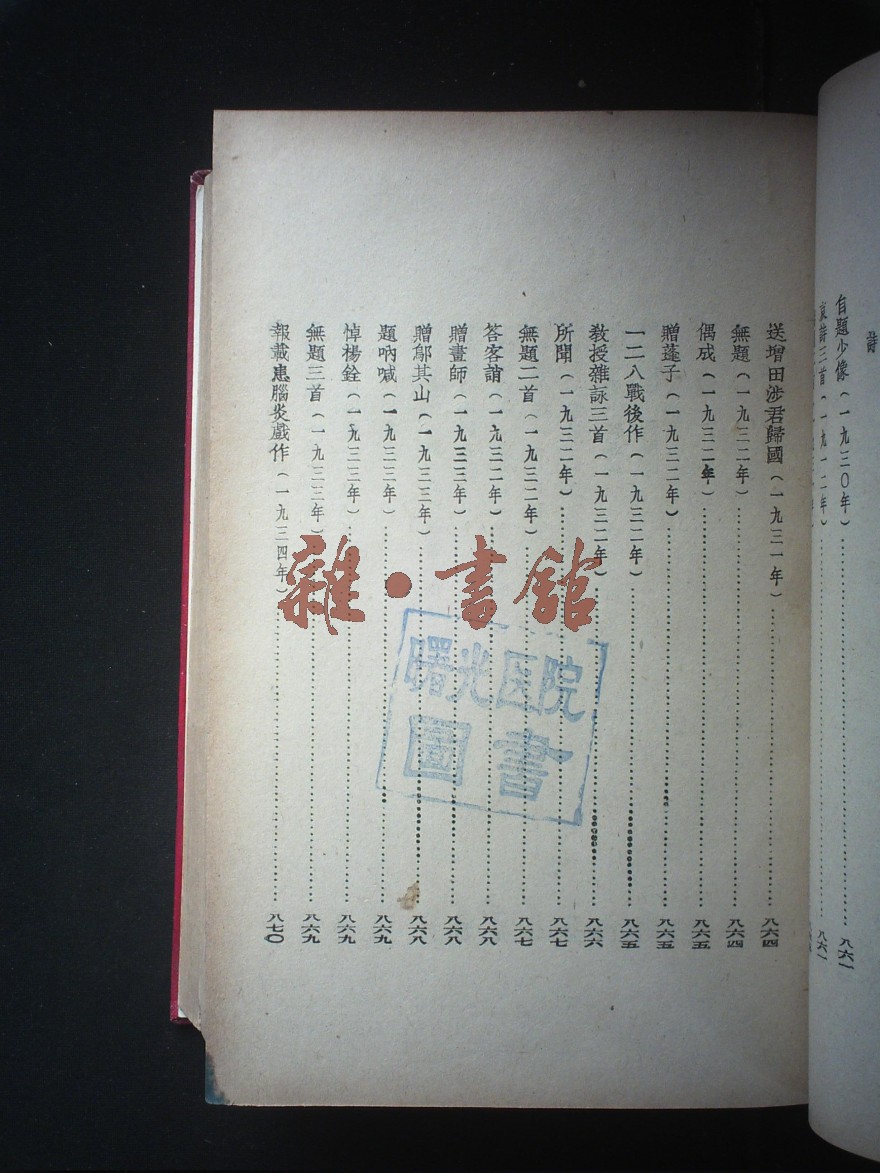 詩
自題少像（一九三〇年）……八六一
哀詩三首（一九一二年）……八六一
送增田涉君歸國（一九三一年）……八六四
無題（一九三二年）……八六四
偶成（一九三二年）……八六五
贈蓬子（一九三二年）……八六五
一二八戰後作（一九三二年）……八六五
教授雜詠三首（一九三二年）……八六六
所聞（一九三二年）……八六七
無題二首（一九三二年）……八六七
答客誚（一九三二年）……八六八
贈畫師（一九三三年）……八六八
贈鄔其山（一九三三年）……八六八
題吶喊（一九三三年）……八六九
悼楊銓（一九三三年）……八六九
無題三首（一九三三年）……八六九
報載患腦炎戲作（一九三四年）……八七〇
雜·書館
曙光医院
圖書